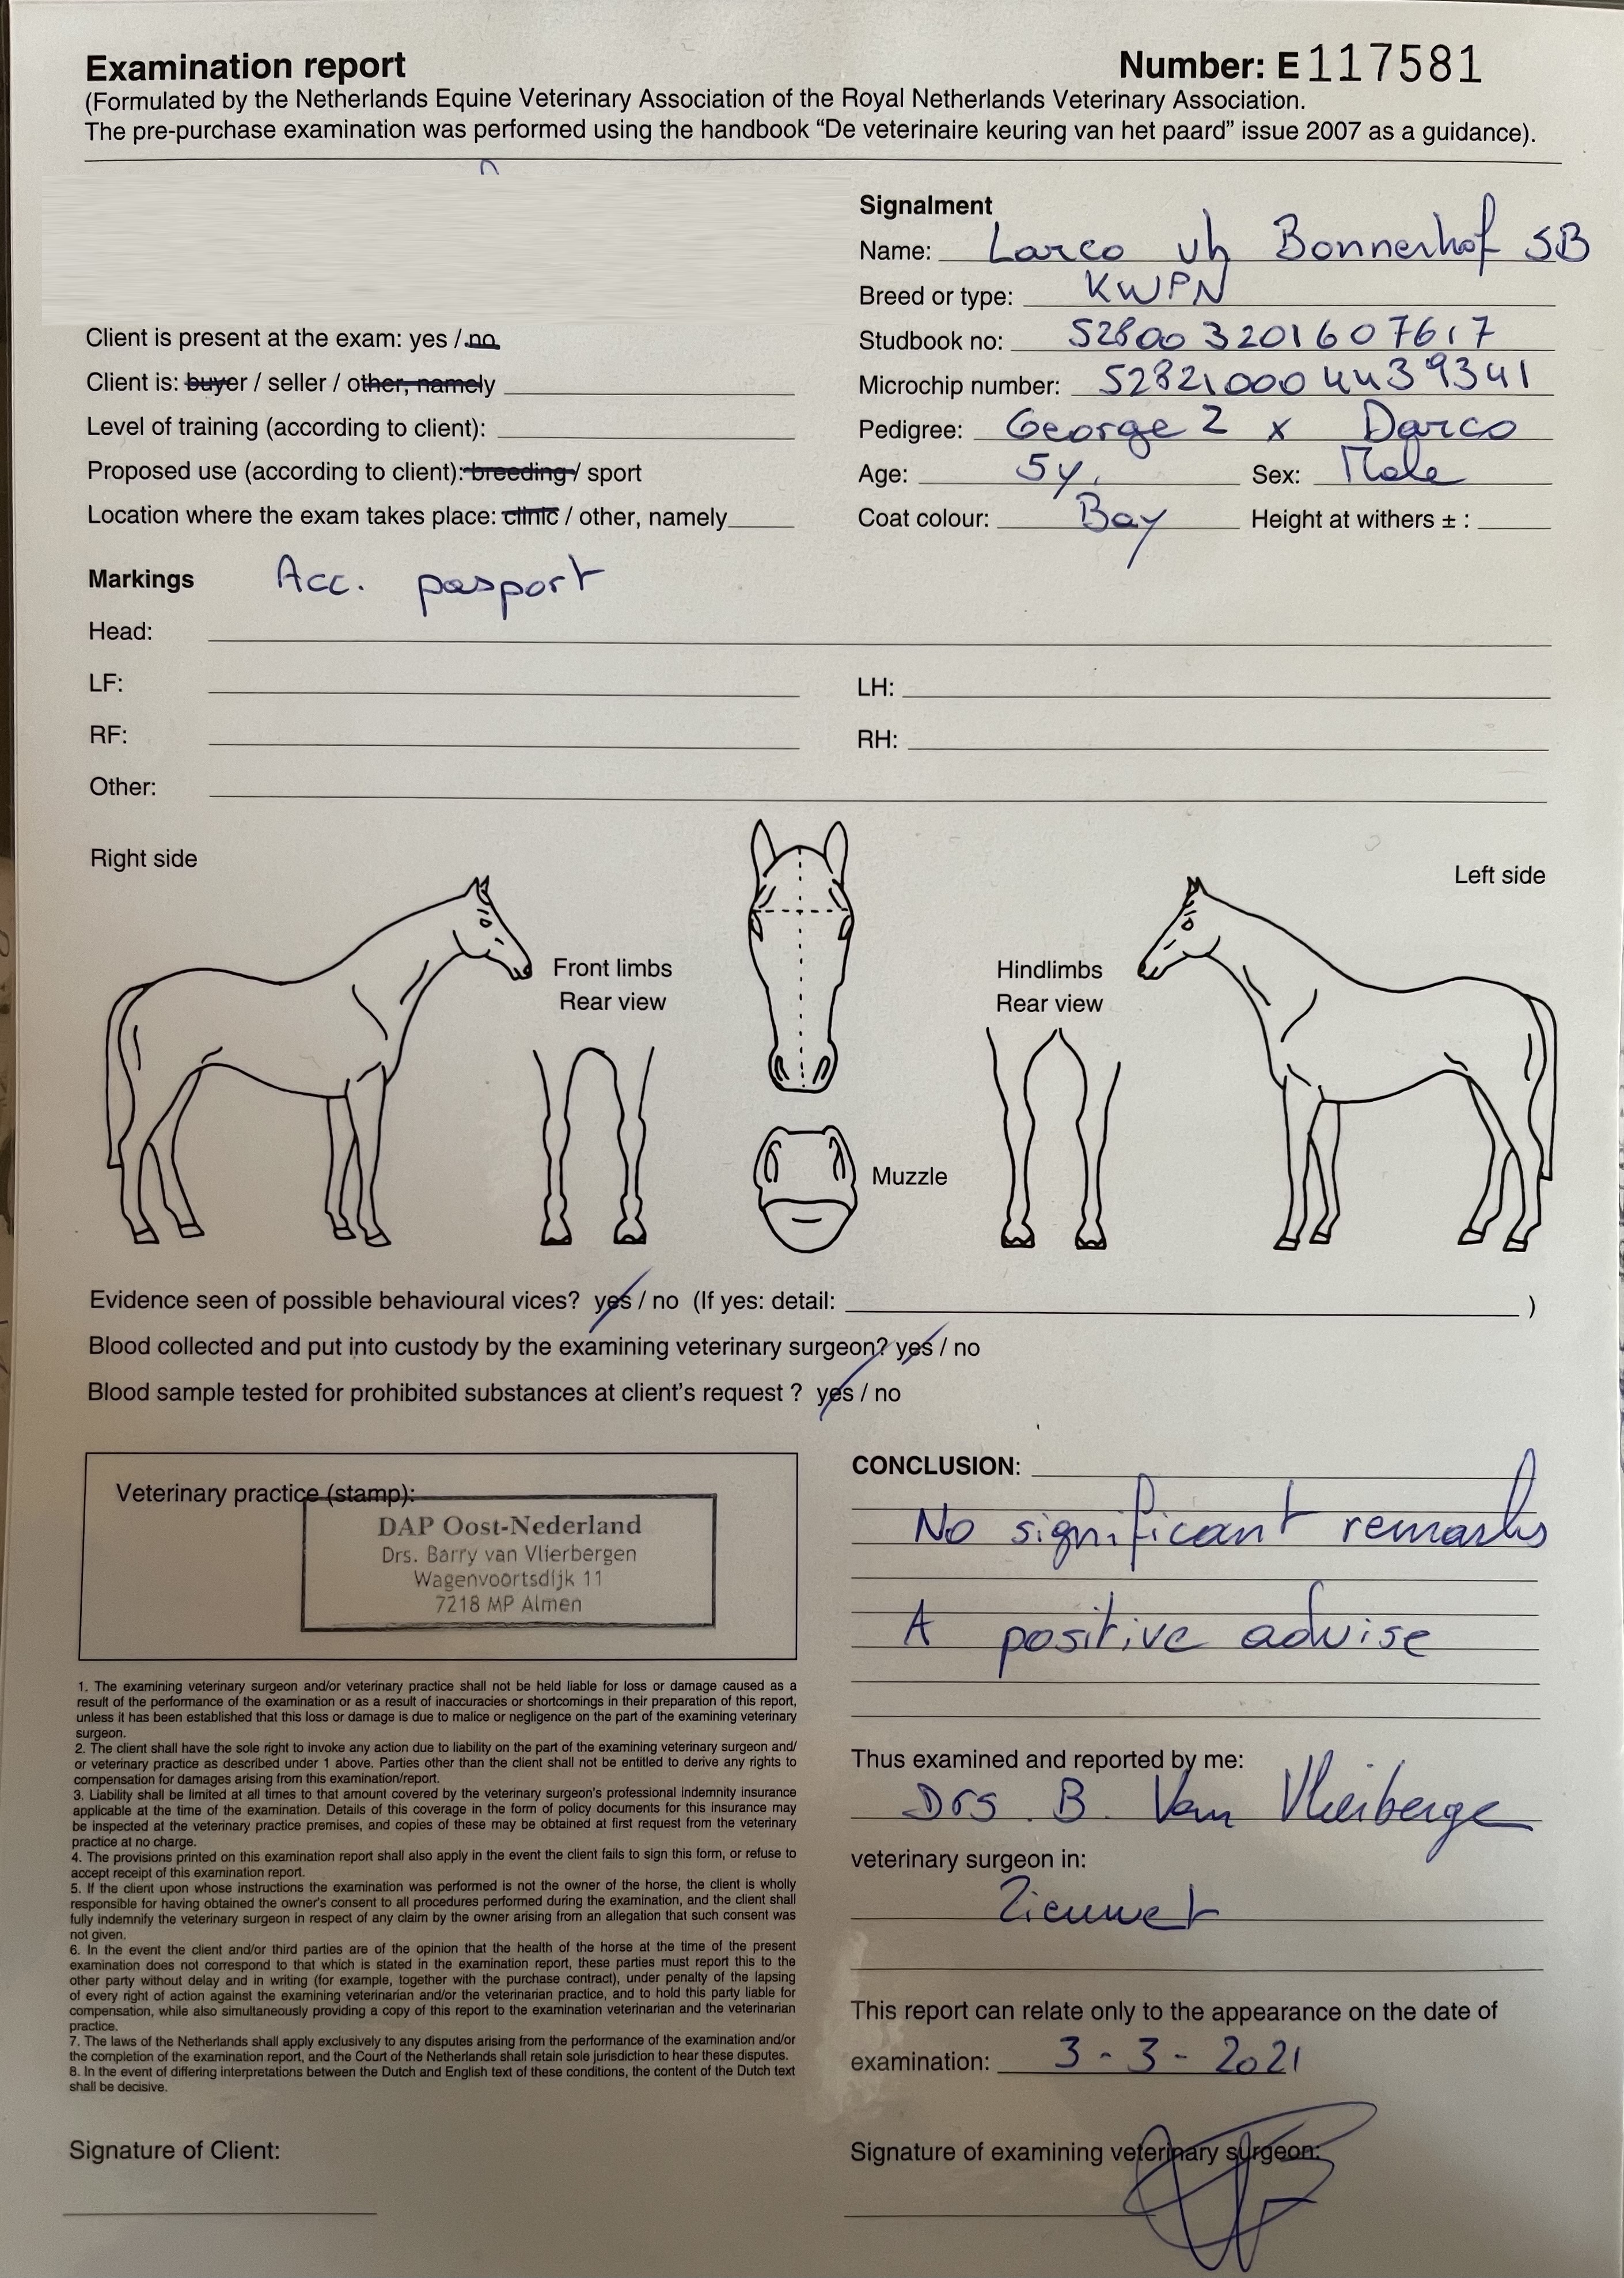 Examination report
Number: E 117581
(Formulated by the Netherlands Equine Veterinary Association of the Royal Netherlands Veterinary Association.
The pre-purchase examination was performed using the handbook “De veterinaire keuring van het paard” issue 2007 as a guidance).
Signalment
Name: Larco vh Bonnerhof SB
Breed or type: KWPN
Studbook no: 528003201607617
Microchip number: 528210004439341
Pedigree: George Z x Darco
Age: 5y. Sex: Male
Coat colour: Bay Height at withers ± :
Client is present at the exam: yes / no
Client is: buyer / seller / other, namely
Level of training (according to client):
Proposed use (according to client): breeding / sport
Location where the exam takes place: clinic / other, namely
Markings Acc. pasport
Head:
LF: LH:
RF: RH:
Other:
Right side
Left side
Front limbs
Rear view
Hindlimbs
Rear view
Muzzle
Evidence seen of possible behavioural vices? yes / no (If yes: detail: )
Blood collected and put into custody by the examining veterinary surgeon? yes / no
Blood sample tested for prohibited substances at client's request ? yes / no
Veterinary practice (stamp):
DAP Oost-Nederland
Drs. Barry van Vlierbergen
Wagenvoortsdijk 11
7218 MP Almen
1. The examining veterinary surgeon and/or veterinary practice shall not be held liable for loss or damage caused as a
result of the performance of the examination or as a result of inaccuracies or shortcomings in their preparation of this report,
unless it has been established that this loss or damage is due to malice or negligence on the part of the examining veterinary
surgeon.
2. The client shall have the sole right to invoke any action due to liability on the part of the examining veterinary surgeon and/
or veterinary practice as described under 1 above. Parties other than the client shall not be entitled to derive any rights to
compensation for damages arising from this examination/report.
3. Liability shall be limited at all times to that amount covered by the veterinary surgeon's professional indemnity insurance
applicable at the time of the examination. Details of this coverage in the form of policy documents for this insurance may
be inspected at the veterinary practice premises, and copies of these may be obtained at first request from the veterinary
practice at no charge.
4. The provisions printed on this examination report shall also apply in the event the client fails to sign this form, or refuse to
accept receipt of this examination report.
5. If the client upon whose instructions the examination was performed is not the owner of the horse, the client is wholly
responsible for having obtained the owner's consent to all procedures performed during the examination, and the client shall
fully indemnify the veterinary surgeon in respect of any claim by the owner arising from an allegation that such consent was
not given.
6. In the event the client and/or third parties are of the opinion that the health of the horse at the time of the present
examination does not correspond to that which is stated in the examination report, these parties must report this to the
other party without delay and in writing (for example, together with the purchase contract), under penalty of the lapsing
of every right of action against the examining veterinarian and/or the veterinarian practice, and to hold this party liable for
compensation, while also simultaneously providing a copy of this report to the examination veterinarian and the veterinarian
practice.
7. The laws of the Netherlands shall apply exclusively to any disputes arising from the performance of the examination and/or
the completion of the examination report, and the Court of the Netherlands shall retain sole jurisdiction to hear these disputes.
8. In the event of differing interpretations between the Dutch and English text of these conditions, the content of the Dutch text
shall be decisive.
Signature of Client:
CONCLUSION:
No significant remarks
A positive advise
Thus examined and reported by me:
Drs. B. Van Vlierberge
veterinary surgeon in:
Zieuwet
This report can relate only to the appearance on the date of
examination: 3 - 3 - 2021
Signature of examining veterinary surgeon: